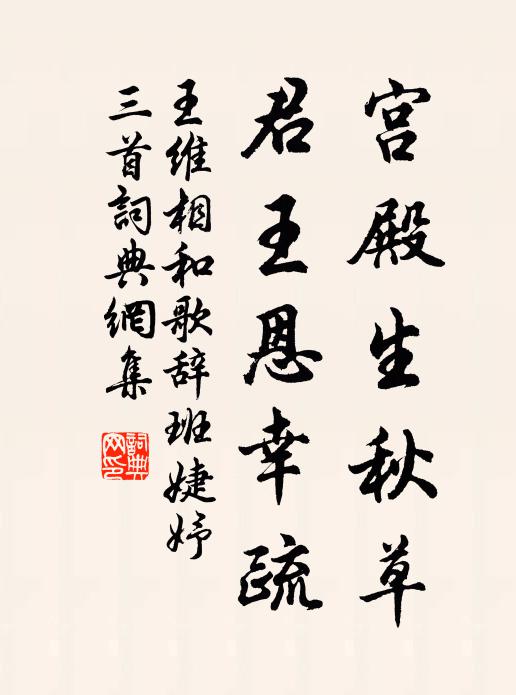 宫殿生秋草
君王恩幸疏
王维相和歌辞班婕妤
三首詞典網集
詞典
网印